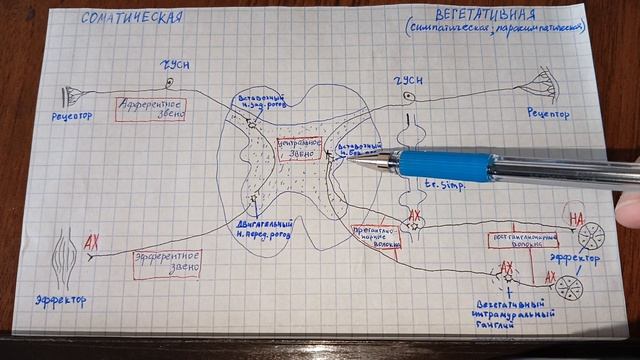 СОМАТИЧЕСКАЯ
ВЕГЕТАТИВНАЯ
(симпатическая; парасимпатическая)
ЧУСН
ЧУСН
Рецептор
Афферентное
звено
Вставочный
н. зад. рогов
Центральное
звено
Вставочный
н. бок.
Рецептор
tr. simp.
АХ
Двигательный
н. перед. рогов
Эфферентное
звено
Эффектор
преганглио-
нарные
волокна
АХ
постганглионарные
волокна
НА
Эффектор
АХ
АХ
Вегетативный
интрамуральный
ганглий